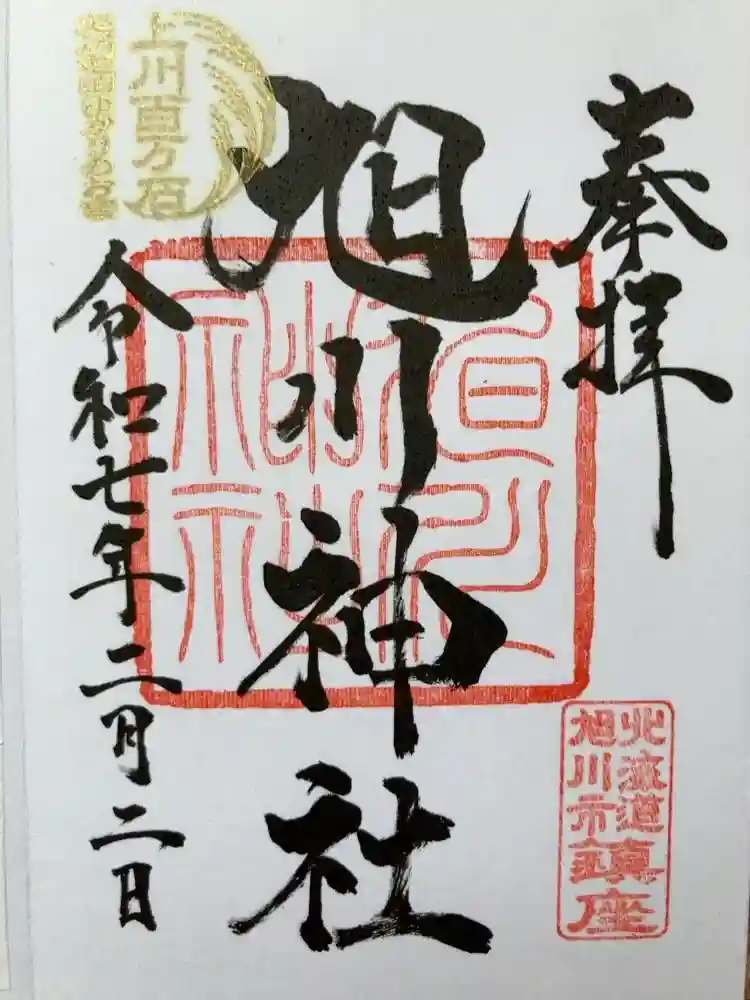 奉拝
北海道
旭川市
鎮座
旭川神社
上川百万石
令和七年二月二日